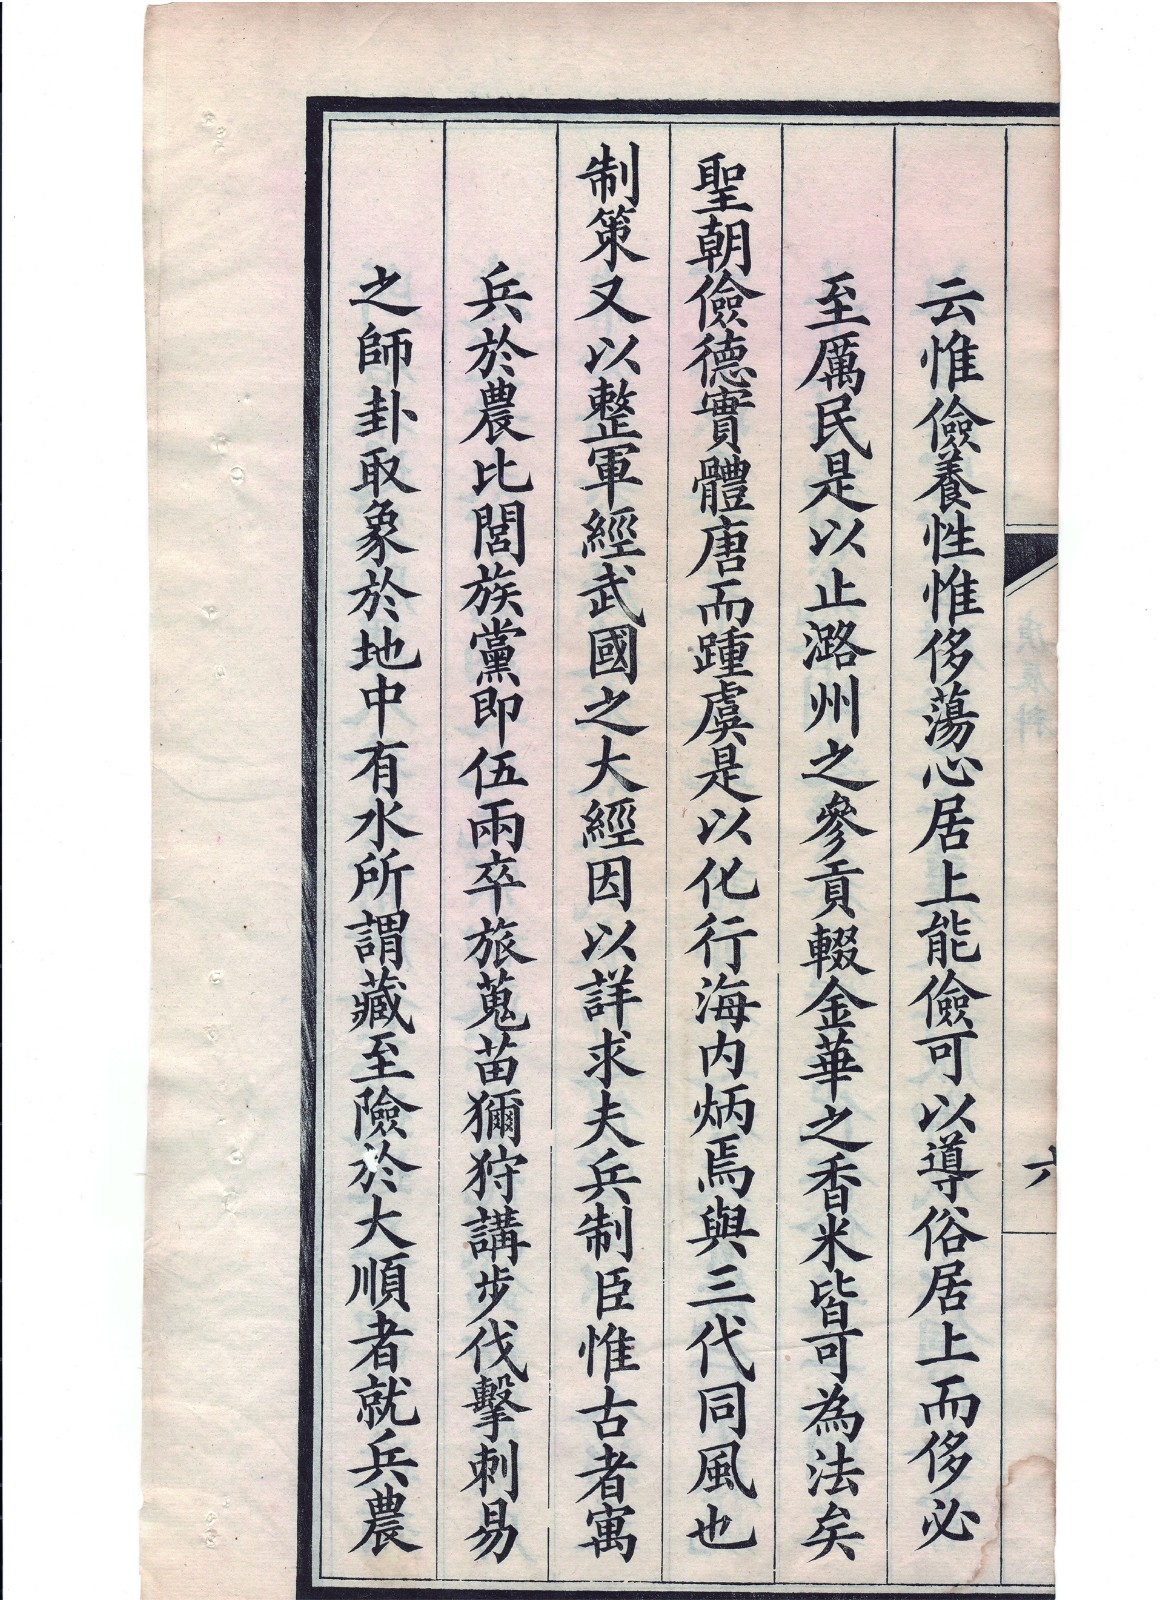 云惟儉養性惟侈蕩心居上能儉可以導俗居上而侈必
至厲民是以止潞州之參貢輟金華之香米皆可為法矣
聖朝儉德實體唐而踵虞是以化行海内炳焉與三代同風也
制策又以整軍經武國之大經因以詳求夫兵制臣惟古者寓
兵於農比閭族黨即伍兩卒旅蒐苗獮狩講步伐擊刺易
之師卦取象於地中有水所謂藏至險於大順者就兵農